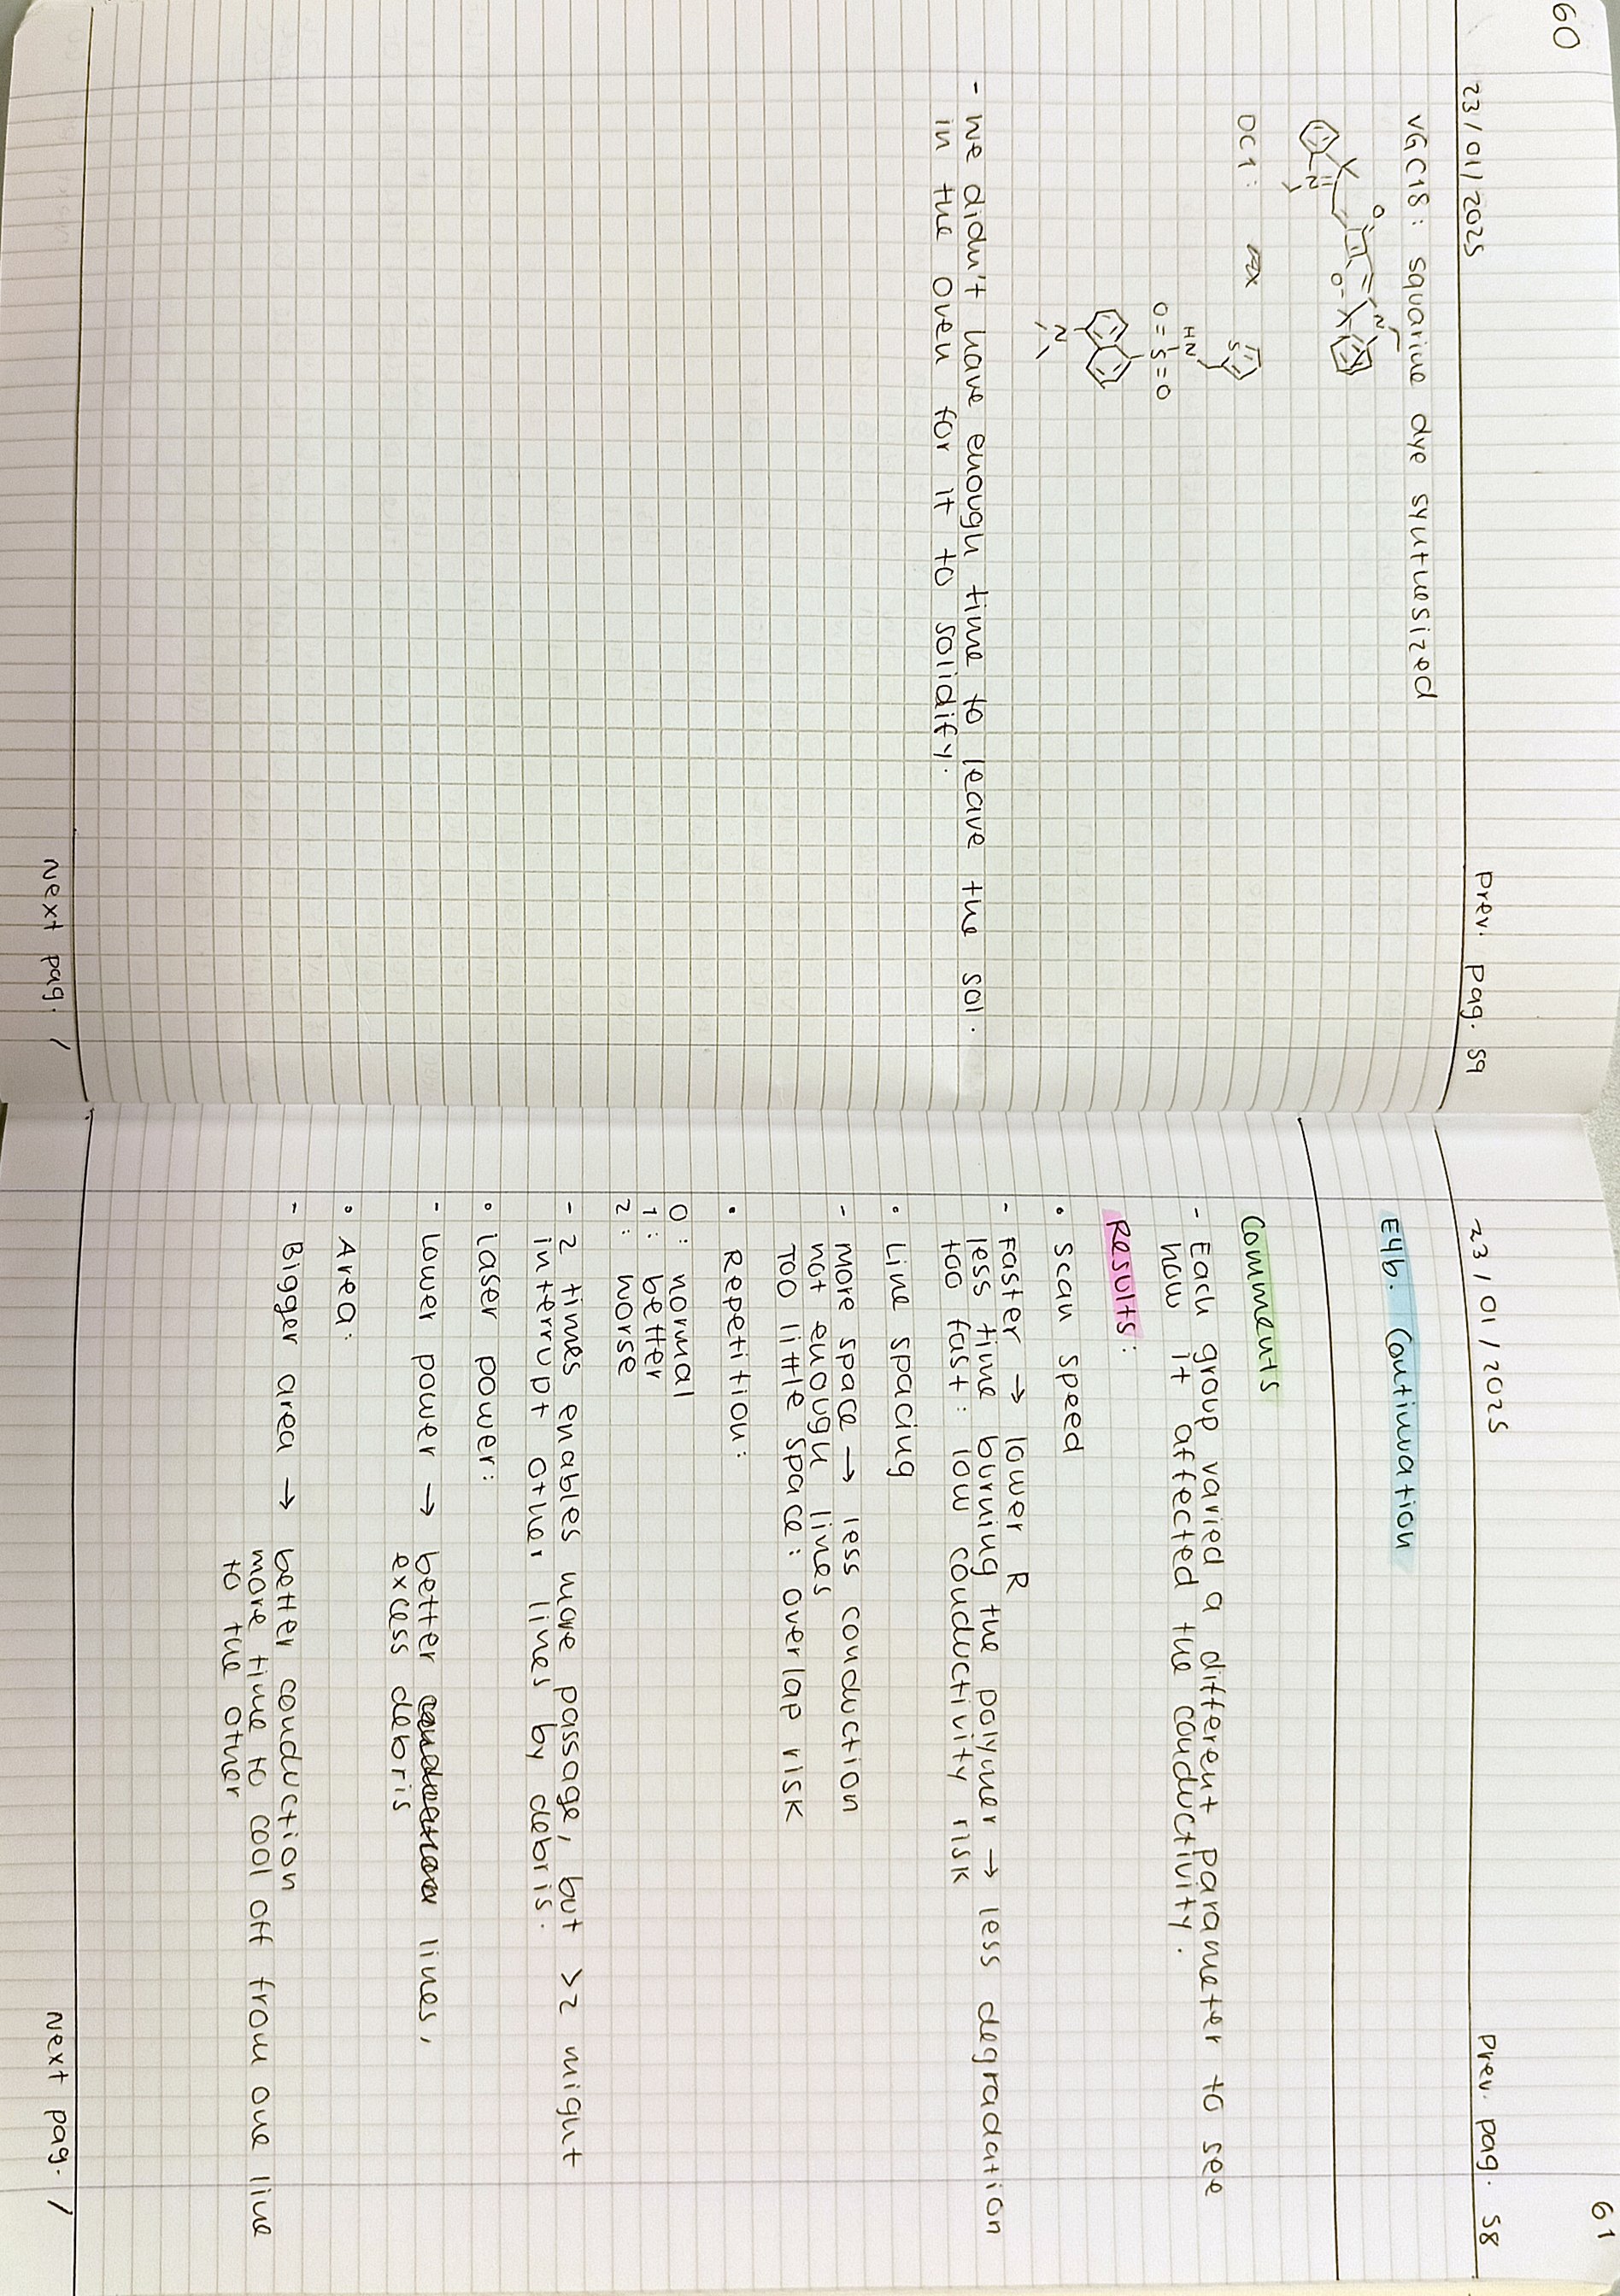 60
23/01/2025
prev. pag. 59
VGC18: squarine dye synthesized
O
N
O-
N
DC1:
S
HN
O=S=O
N
- we didn't have enough time to leave the sol.
in the oven for it to solidify.
next pag. /
61
23/01/2025
prev. pag. 58
E4b. Continuation
Comments
- Each group varied a different parameter to see
how it affected the conductivity.
Results:
• scan speed
- Faster → lower R
less time burning the polymer → less degradation
too fast: low conductivity risk
• Line spacing
- more space → less conduction
not enough lines
Too little space: overlap risk
• Repetition:
0: normal
1: better
2: worse
- 2 times enables more passage, but >2 might
interrupt other lines by debris.
• laser power:
- lower power → better lines,
excess debris
• Area:
- Bigger area → better conduction
more time to cool off from one line
to the other
next pag. /